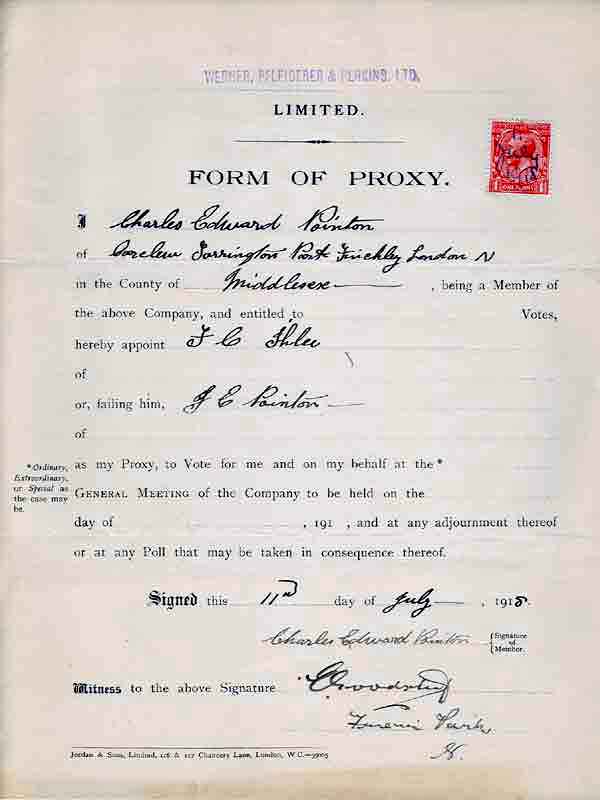 WERNER, PFLEIDERER & PERKINS, LTD.
LIMITED.
FORM OF PROXY.
I Charles Edward Pointon
of Carclew Torrington Park Finchley London N
in the County of Middlesex, being a Member of
the above Company, and entitled to Votes,
hereby appoint F C Ihlee
of
or, failing him, J E Pointon
of
as my Proxy, to Vote for me and on my behalf at the *
* Ordinary,
Extraordinary,
or Special as
the case may
be.
GENERAL MEETING of the Company to be held on the
day of , 191 , and at any adjournment thereof
or at any Poll that may be taken in consequence thereof.
Signed this 11th day of July, 1918.
Charles Edward Pointon { Signature of Member.
Witness to the above Signature
Jordan & Sons, Limited, 116 & 117 Chancery Lane, London, W.C.
ONE PENNY